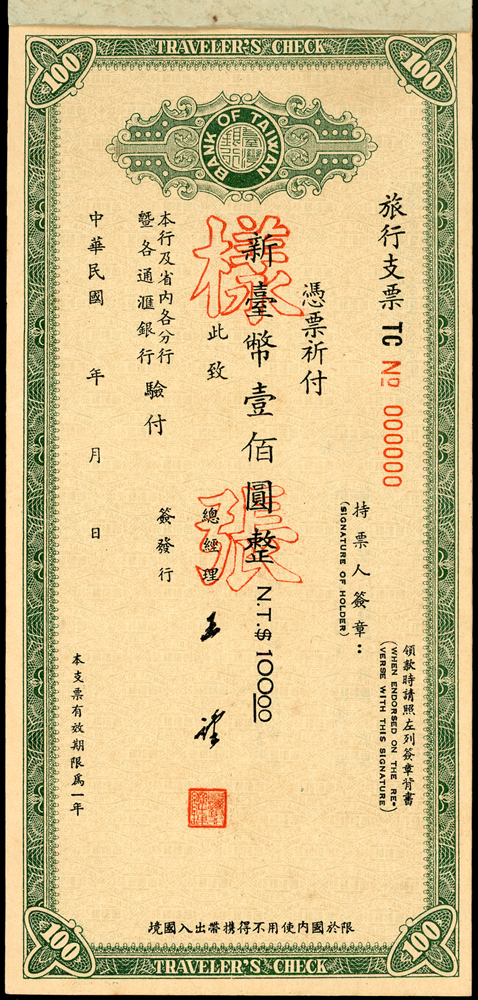 TRAVELER'S CHECK
100
100
BANK OF TAIWAN
臺灣銀行
旅行支票 TC No 000000
領款時請照左列簽章背書
(WHEN ENDORSED ON THE RE-
VERSE WITH THIS SIGNATURE)
持票人簽章：
(SIGNATURE OF HOLDER)
憑票祈付
新臺幣壹佰圓整 N.T.$100.00
樣張
此致
總經理
本行及省內各分行
暨各通滙銀行
驗付
簽發行
中華民國 年 月 日
本支票有效期限爲一年
境國入出帶携得不用使內國於限
100
100
TRAVELER'S CHECK